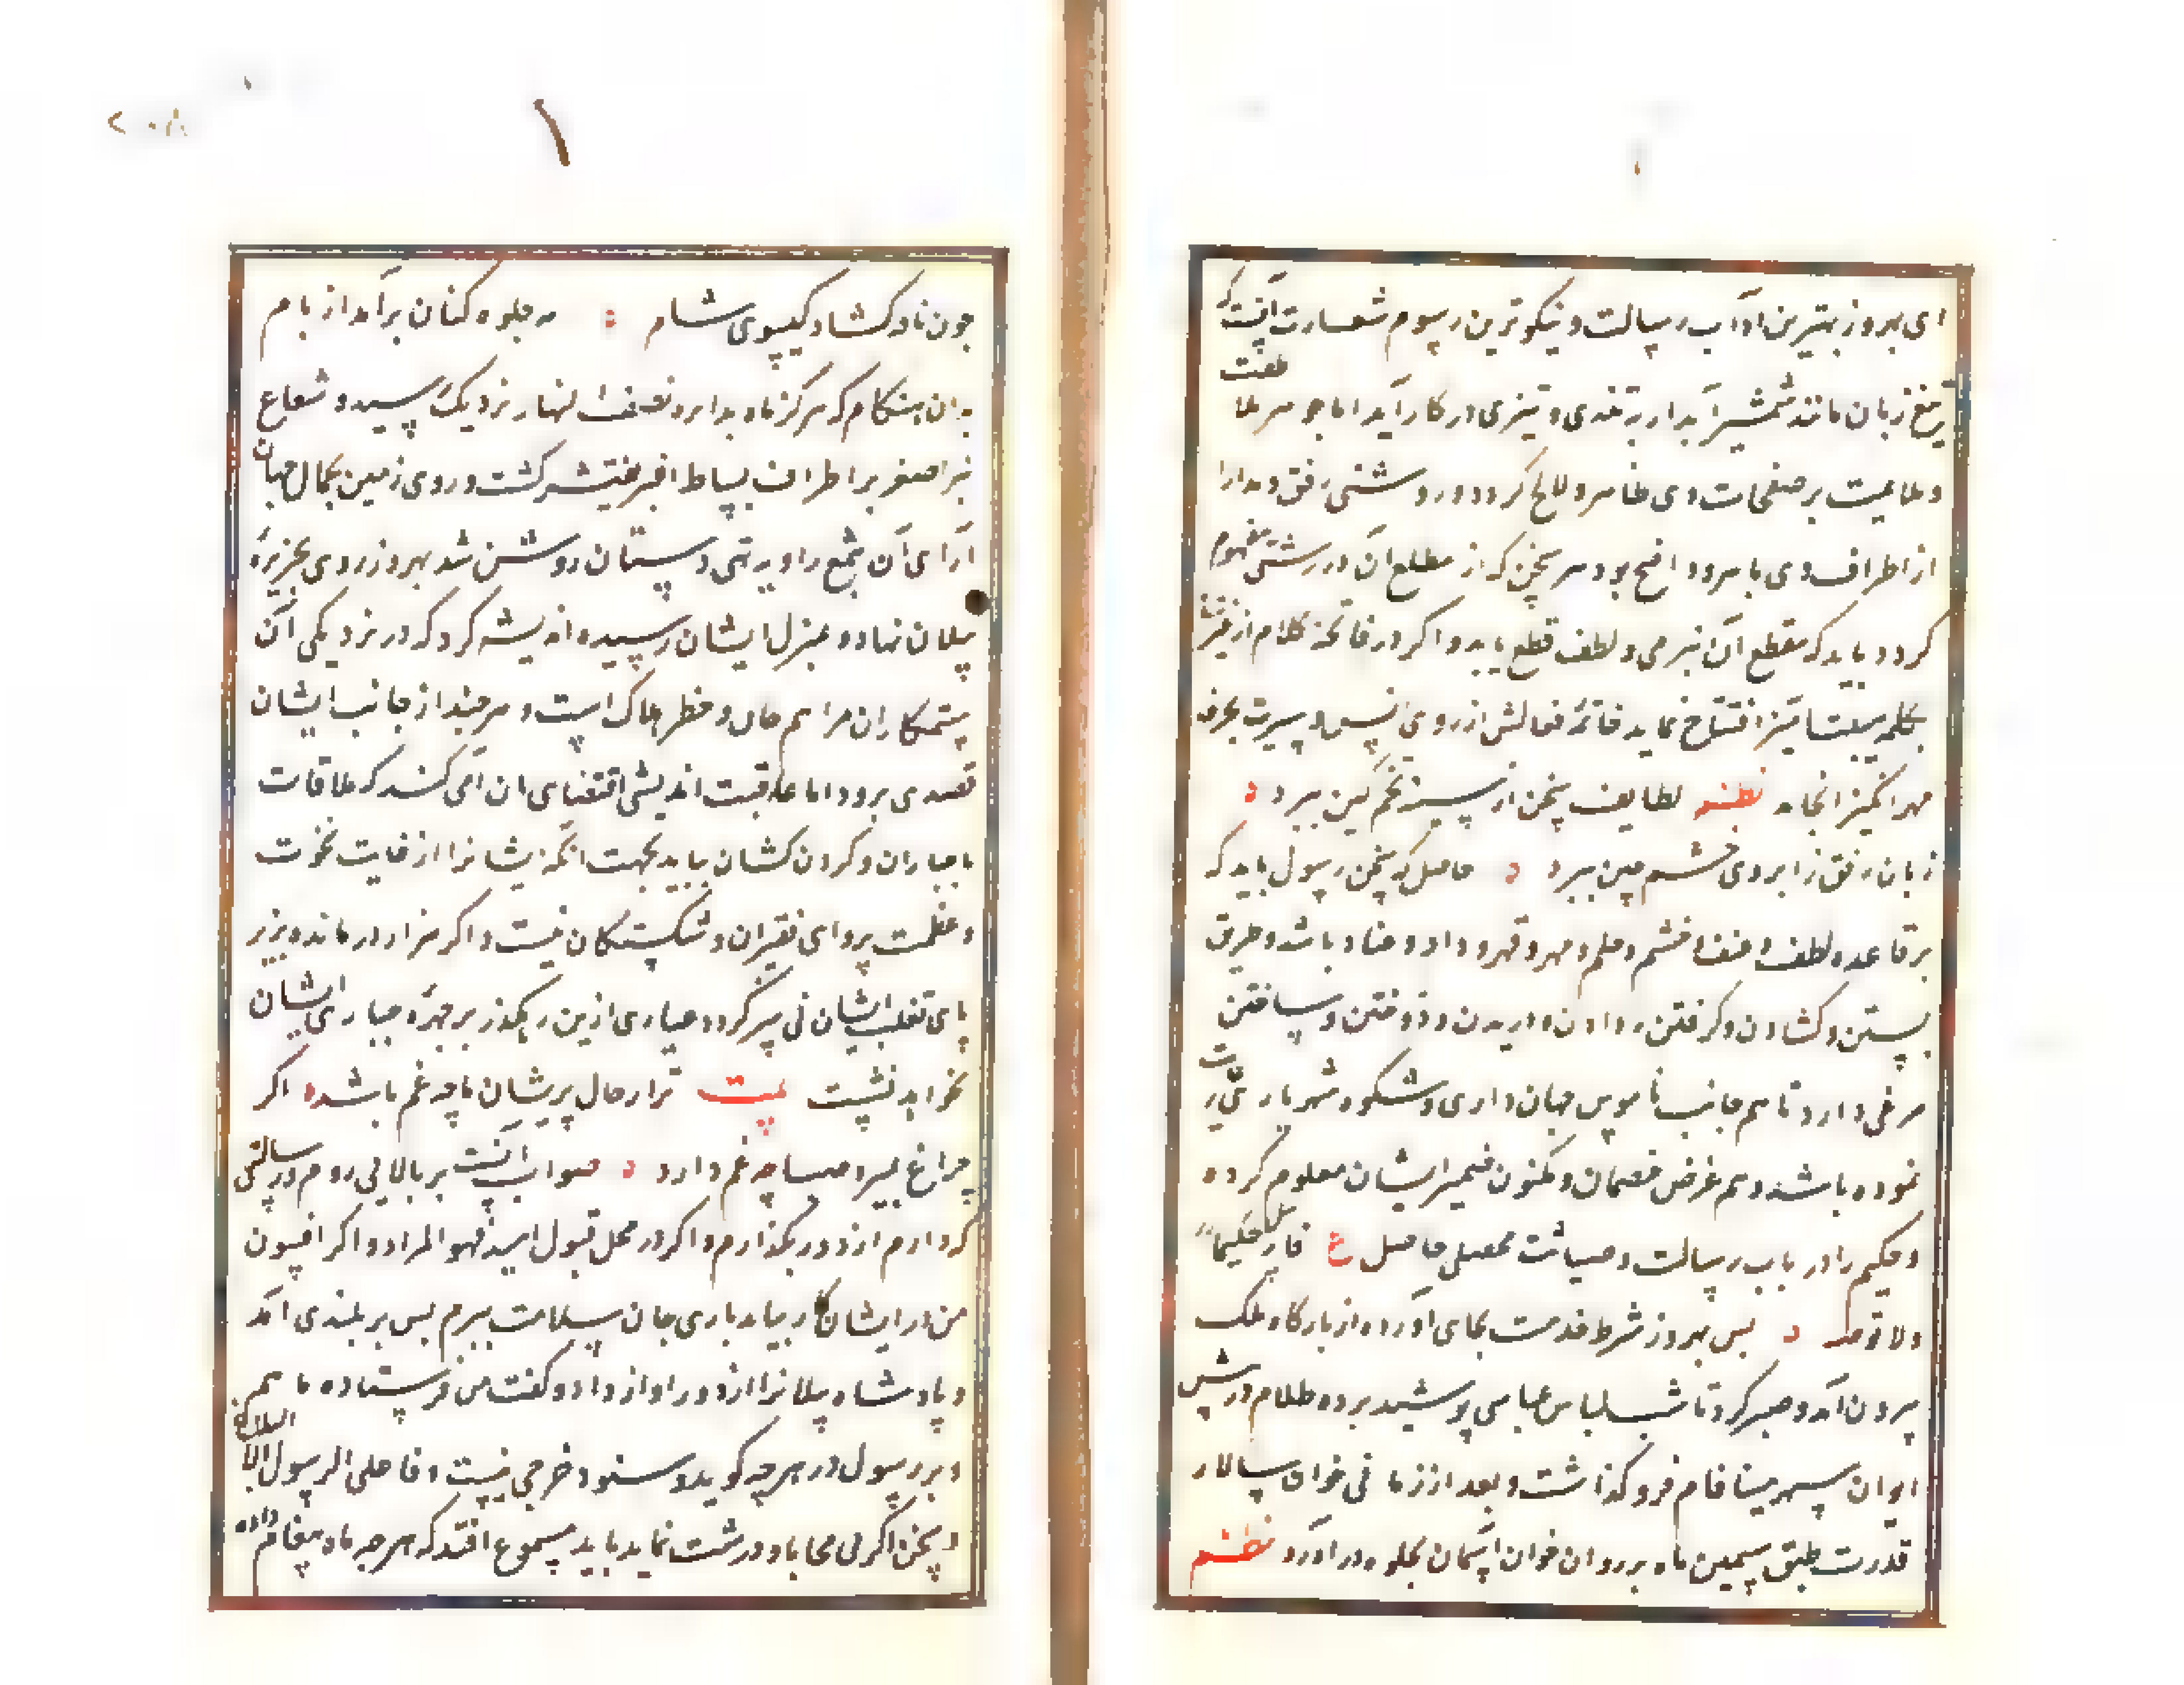 ای بهروز بهترین اداب رسالت و نیکوترین رسوم شفارت آنست که
تیغ زبان مانند شمشیر آبدار به تندی و تیزی در کار آید اما جوهر ملاطفت
و ملایمت بر صفحات وی ظاهر و لایح کردد و روشنی رفق و مدارا
از اطراف وی باهر و واضح بود هر سخن که از مطلع آن درشتی مفهوم
کردد باید که مقطع آن بنرمی و لطف قطع یابد و اکر در فاتحه کلام از
بکلمه هیبت افتتاح نماید خاتمه مقالش از روی
مهرانکیز انجامد نظم لطایف سخن از سینه تخم کین ببرد
زبان رفق ز ابروی خشم چین ببرد حاصل که سخن رسول باید که
بر قاعده لطف و عنف و خشم و حلم و مهر و قهر و داد و عناد باشد و طریق
بستن و کشادن و کرفتن و دادن و دریدن و دوختن و ساختن
مرعی دارد تا هم جانب ناموس جهان داری و شکوه شهریاری رعایت
نموده باشد و هم غرض خصمان و مکنون ضمیر ایشان معلوم کرده
و حکیم را در باب رسالت و وصیت حاصل ع فارسل حکیما
ولا توصه بس بهروز شرط خدمت بجای آورده از بارکاه ملک
بیرون آمد و صبر کرد تا شب لباس عباسی پوشید برده ظلام در پیش
ایوان سپهر مینا فام فرو کذاشت و بعد از زمانی خوان سالار
قدرت طبق سیمین ماه بر روان خوان آسمان بجلوه در آورد نظم
جون ناد کشاد کیسوی شام مه جلوه کنان برآمد از بام
بدان هنکام که مرکز ماه بدایره نصف النهار نزدیک رسید و شعاع
نیر اصغر بر اطراف بساط اغبر منتشر کشت و روی زمین بجمال جهان
آرای آن شمع زاویه تهی دستان روشن شد بهروز روی بجزیره
پیلان نهاده و بمنزل ایشان رسیده اندیشه کرد که در نزدیکی آن
ستمکاران مرا بیم جان و خطر هلاک است و هر چند از جانب ایشان
قصدی نرود اما عاقبت اندیشی اقتضای آن می کند که ملاقات
با جباران و کردن کشان نباید بجهت آنکه ایشانرا از غایت نخوت
و عظمت پروای فقیران و شکستکان نیست و اکر هزار درمانده در زیر
پای تغلب ایشان پی سپر کردد غباری ازین رهکذر بر چهره جباری ایشان
نخواهد نشست بیت ترا ز حال پریشان ما چه غم باشد اکر
چراغ بمیرد صبا چه غم دارد صواب آنست بر بالایی روم و رسالتی
که دارم از دور بکذارم و اکر در محل قبول افتد فهو المراد و اکر افسون
من در ایشان کار نیاید باری جان بسلامت ببرم بس بر بلندی آمد
و پادشاه پیلانرا از دور آواز داد و کفت من فرستاده ماهم
و بر رسول در هرچه کوید و شنود حرجی نیست و ما علی الرسول الا البلاغ
و سخن اکر بی محابا و درشت نماید باید مسموع افتد که هرچه ماه پیغام داده